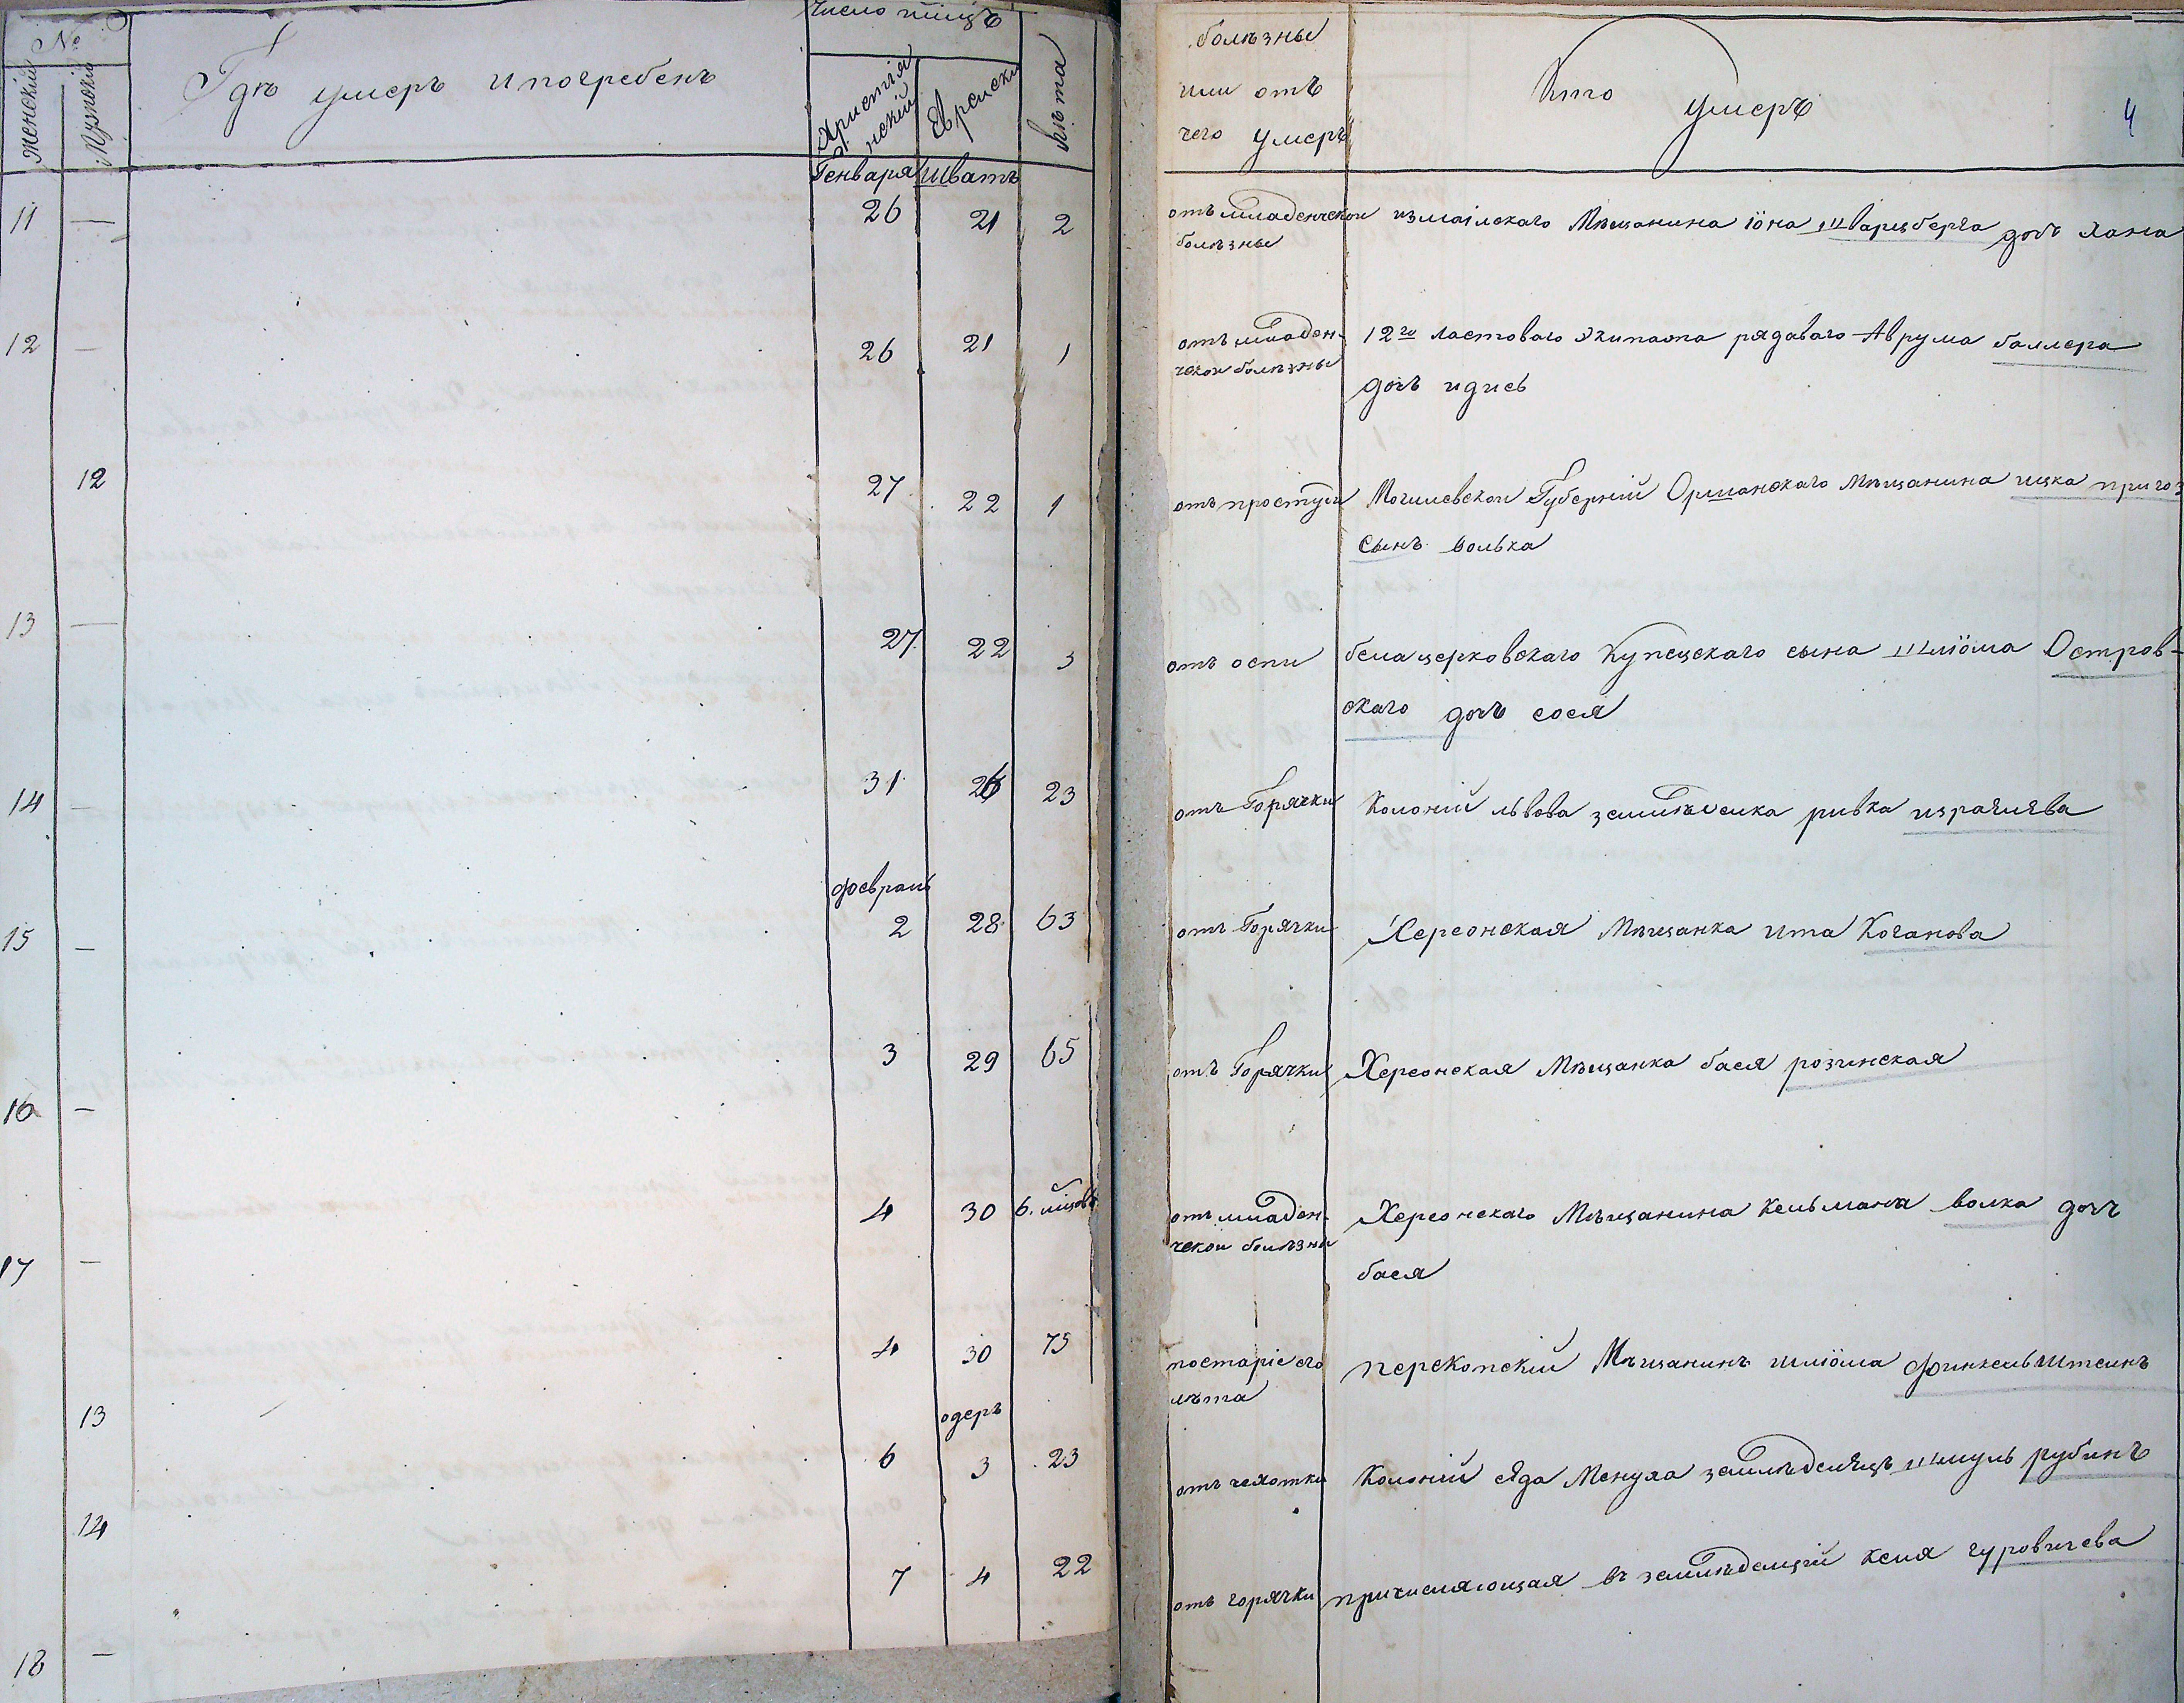 №
Женский
Мужский
Гдѣ умеръ и погребенъ
Христія
нский
Еврейски
Лѣта
болѣзны
или отъ
чего умеръ
Кто умеръ
4
Генваря Шватъ
11 — 26 21 2
отъ младенческои измаілскаго Мѣщанина Іона Шварцберга дочь Хана
болѣзны
12 — 26 21 1
отъ младен- 12го ластоваго Экипажа рядаваго Аврума баллера
ческои болѣзны
дочь идись
12 27 22 1
отъ простуди Могилевскои Губерніи Оршанскаго Мѣщанина ицка
сынъ волька
13 — 27 22 3
отъ оспи белацерковскаго Купецскаго сына Шліома Остров-
скаго дочь сося
14 — 31 26 23
отъ Горячки Колоніи львова ривка израилева
февраль
15 — 2 28 63
отъ Горячки Херсонская Мѣщанка ита Коганова
16 — 3 29 65
отъ Горячки Херсонская Мѣщанка бася розинская
17 — 4 30 6.
отъ младен- Херсонскаго Мѣщанина Кельмана волка дочь
ческои болѣзны
бася
13 4 30 75
постаріе его перекопскій Мѣщанинъ шліома Финкельштеинъ
лѣта
одеръ
14 6 3 23
отъ чехотки Колоніи сяда Менуха земледелецъ Шмуль рубинъ
18 — 7 4 22
отъ горячки причисляющая въ кеня гуровичева